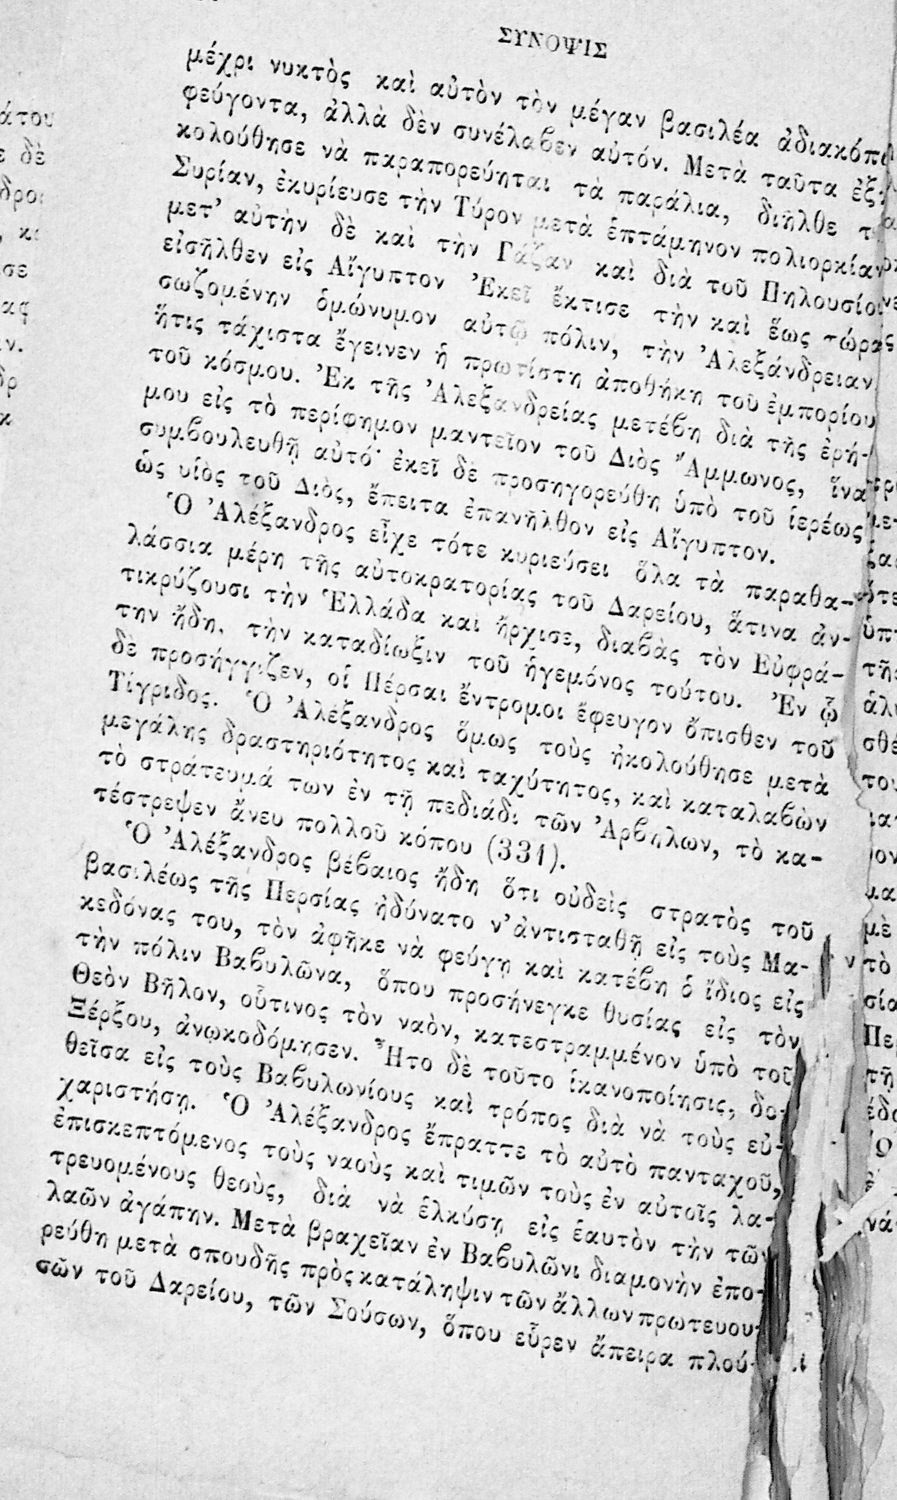 ΣΥΝΟΨΙΣ
μέχρι νυκτὸς καὶ αὐτὸν τὸν μέγαν βασιλέα ἀδιακόπω
φεύγοντα, ἀλλὰ δὲν συνέλαβεν αὐτόν. Μετὰ ταῦτα ἐξ
κολούθησε νὰ παραπορεύηται τὰ παράλια, διῆλθε
Συρίαν, ἐκυρίευσε τὴν Τύρον μετὰ ἑπτάμηνον πολιορκίαν
μετ' αὐτὴν δὲ καὶ τὴν Γάζαν καὶ διὰ τοῦ Πηλουσίου
εἰσῆλθεν εἰς Αἴγυπτον Ἐκεῖ ἔκτισε τὴν καὶ ἕως τώρα
σωζομένην ὁμώνυμον αὐτῷ πόλιν, τὴν Ἀλεξάνδρειαν
ἥτις τάχιστα ἔγεινεν ἡ πρωτίστη ἀποθήκη τοῦ ἐμπορίου
τοῦ κόσμου. Ἐκ τῆς Ἀλεξανδρείας μετέβη διὰ τῆς ἐρή-
μου εἰς τὸ περίφημον μαντεῖον τοῦ Διὸς Ἄμμωνος, ἵνα
συμβουλευθῇ αὐτό· ἐκεῖ δὲ προσηγορεύθη ὑπὸ τοῦ ἱερέως
ὡς υἱὸς τοῦ Διὸς, ἔπειτα ἐπανῆλθον εἰς Αἴγυπτον.
Ὁ Ἀλέξανδρος εἶχε τότε κυριεύσει ὅλα τὰ παραθα-
λάσσια μέρη τῆς αὐτοκρατορίας τοῦ Δαρείου, ἅτινα ἀν-
τικρύζουσι τὴν Ἑλλάδα καὶ ἤρχισε, διαβὰς τὸν Εὐφρά-
την ἤδη, τὴν καταδίωξιν τοῦ ἡγεμόνος τούτου. Ἐν ᾧ
δὲ προσήγγιζεν, οἱ Πέρσαι ἔντρομοι ἔφευγον ὄπισθεν τοῦ
Τίγριδος. Ὁ Ἀλέξανδρος ὅμως τοὺς ἠκολούθησε μετὰ
μεγάλης δραστηριότητος καὶ ταχύτητος, καὶ καταλαβὼν
τὸ στράτευμά των ἐν τῇ πεδιάδι τῶν Ἀρβήλων, τὸ κα-
τέστρεψεν ἄνευ πολλοῦ κόπου (331).
Ὁ Ἀλέξανδρος βέβαιος ἤδη ὅτι οὐδεὶς στρατὸς τοῦ
βασιλέως τῆς Περσίας ἠδύνατο ν' ἀντισταθῇ εἰς τοὺς Μα-
κεδόνας του, τὸν ἀφῆκε νὰ φεύγῃ καὶ κατέβη ὁ ἴδιος εἰς
τὴν πόλιν Βαβυλῶνα, ὅπου προσήνεγκε θυσίας εἰς τὸν
Θεὸν Βῆλον, οὗτινος τὸν ναὸν, κατεστραμμένον ὑπὸ τοῦ
Ξέρξου, ἀνῳκοδόμησεν. Ἦτο δὲ τοῦτο ἱκανοποίησις, δο-
θεῖσα εἰς τοὺς Βαβυλωνίους καὶ τρόπος διὰ νὰ τοὺς εὐ-
χαριστήσῃ. Ὁ Ἀλέξανδρος ἔπραττε τὸ αὐτὸ πανταχοῦ,
ἐπισκεπτόμενος τοὺς ναοὺς καὶ τιμῶν τοὺς ἐν αὐτοῖς λα-
τρευομένους θεοὺς, διὰ νὰ ἑλκύσῃ εἰς ἑαυτὸν τὴν τῶν
λαῶν ἀγάπην. Μετὰ βραχεῖαν ἐν Βαβυλῶνι διαμονὴν ἐπο-
ρεύθη μετὰ σπουδῆς πρὸς κατάληψιν τῶν ἄλλων πρωτευου-
σῶν τοῦ Δαρείου, τῶν Σούσων, ὅπου εὗρεν ἄπειρα πλού-